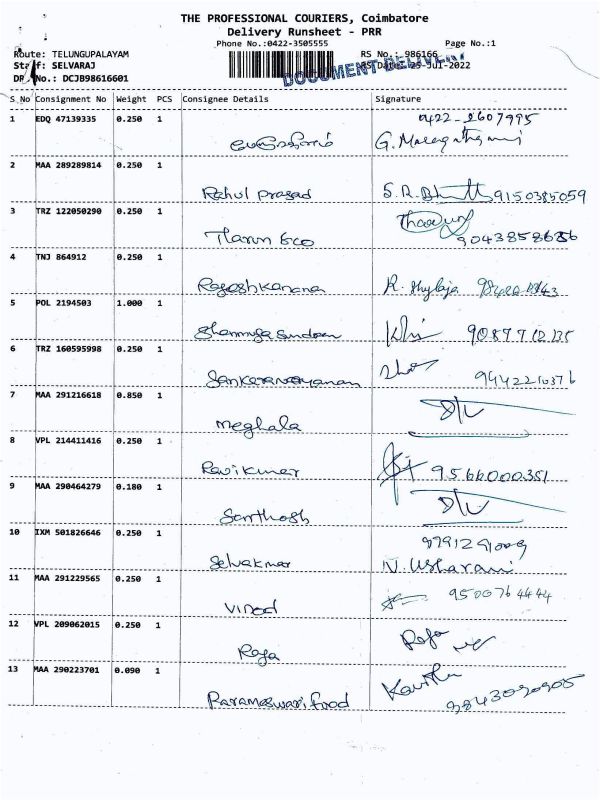 THE PROFESSIONAL COURIERS, Coimbatore
Delivery Runsheet - PRR
Phone No.:0422-3505555 Page No.:1
Route: TELUNGUPALAYAM RS No.: 986166
Staff: SELVARAJ RS Date: 25-Jul-2022
DOCUMENT DELIVERY
DR No.: DCJB98616601
S No Consignment No Weight PCS Consignee Details Signature
1 EDQ 47139335 0.250 1 0422-2607995
2 MAA 289289814 0.250 1
Rahul prasad 9150385059
3 TRZ 122050290 0.250 1
Tharun Eco
4 TNJ 864912 0.250 1
Rajeshkanana
5 POL 2194503 1.000 1
6 TRZ 160595998 0.250 1
Sankaranarayanan
7 MAA 291216618 0.850 1
meghala
8 VPL 214411416 0.250 1
Ravikumar 9566000351
9 MAA 290464279 0.180 1
Santhosh
10 IXM 501826646 0.250 1
Selvakmar N. Usharani
11 MAA 291229565 0.250 1
Vinod 9500764444
12 VPL 209062015 0.250 1
Raja Raja
13 MAA 290223701 0.090 1
Parameswari food Kavitha